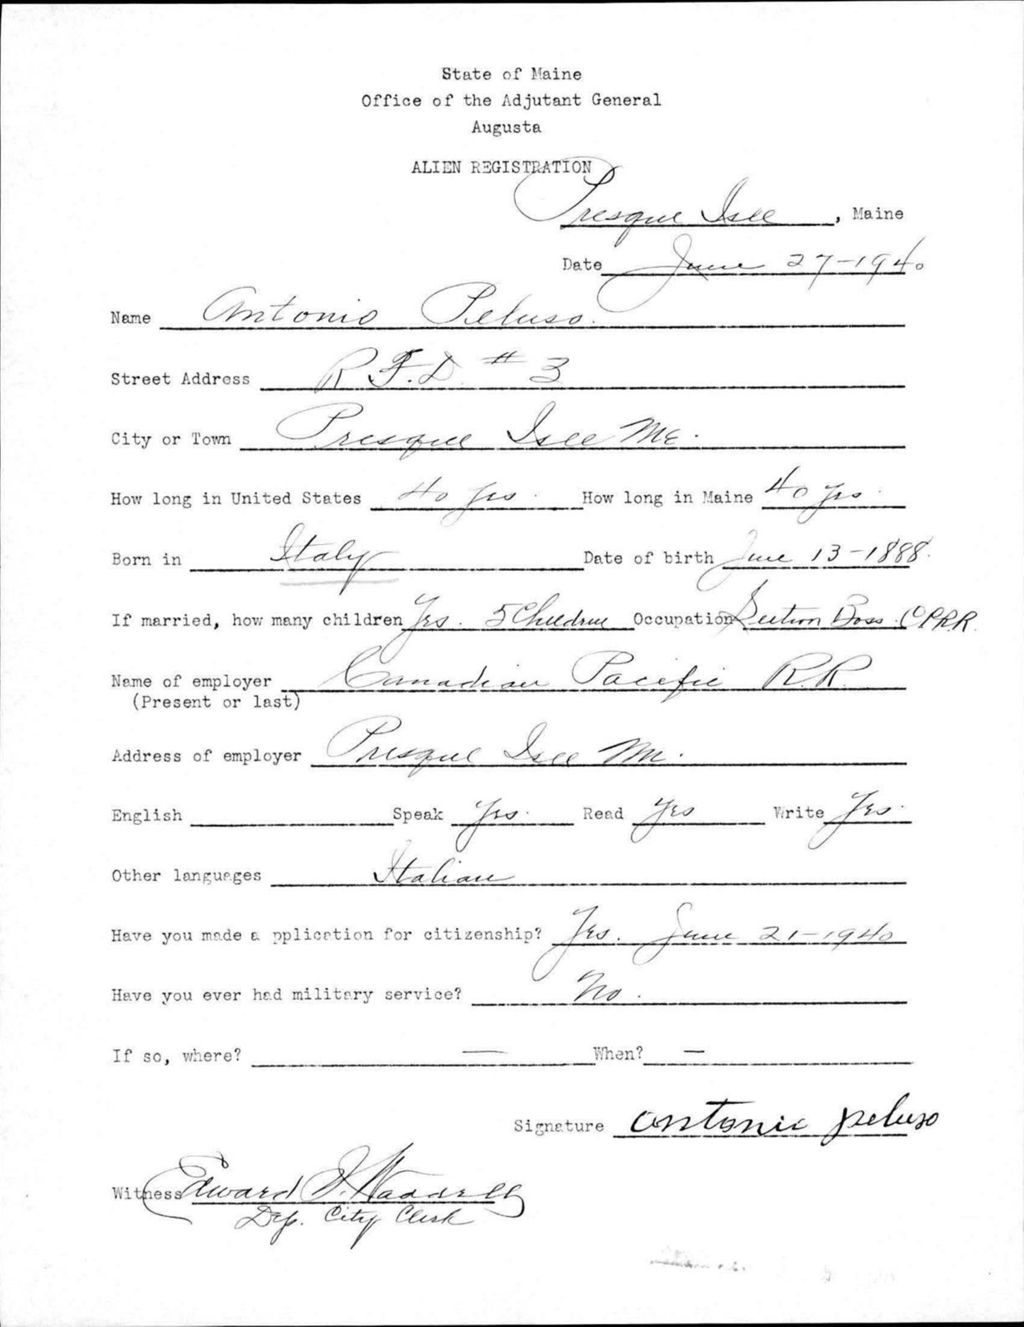 State of Maine
Office of the Adjutant General
Augusta
ALIEN REGISTRATION
Presque Isle, Maine
Date June 27-1940
Name Antonio Peluso.
Street Address R.F.D. # 3
City or Town Presque Isle Me.
How long in United States 40 yrs. How long in Maine 40 yrs.
Born in Italy Date of birth June 13-1888.
If married, how many children Yes. 5 Children Occupation Section Boss. C.P.R.R.
Name of employer Canadian Pacific R.R.
(Present or last)
Address of employer Presque Isle Me.
English Speak Yes. Read Yes Write Yes.
Other languages Italian
Have you made a pplication for citizenship? Yes. June 21-1940
Have you ever had military service? No.
If so, where? — When? —
Signature antonio peluso
Witness Edward J. Waddell
Dep. City Clerk